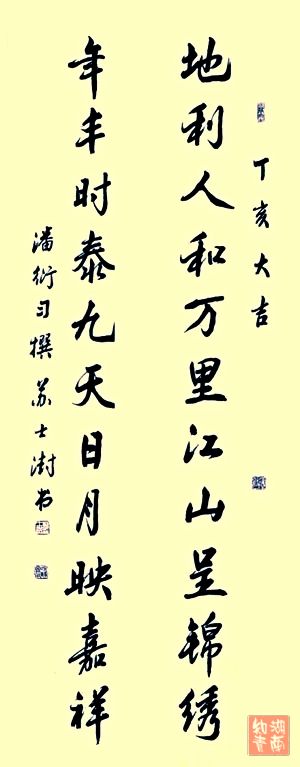 丁亥大吉
地利人和万里江山呈锦绣
年丰时泰九天日月映嘉祥
潘衍习撰 苏士澍书
湖南
知青